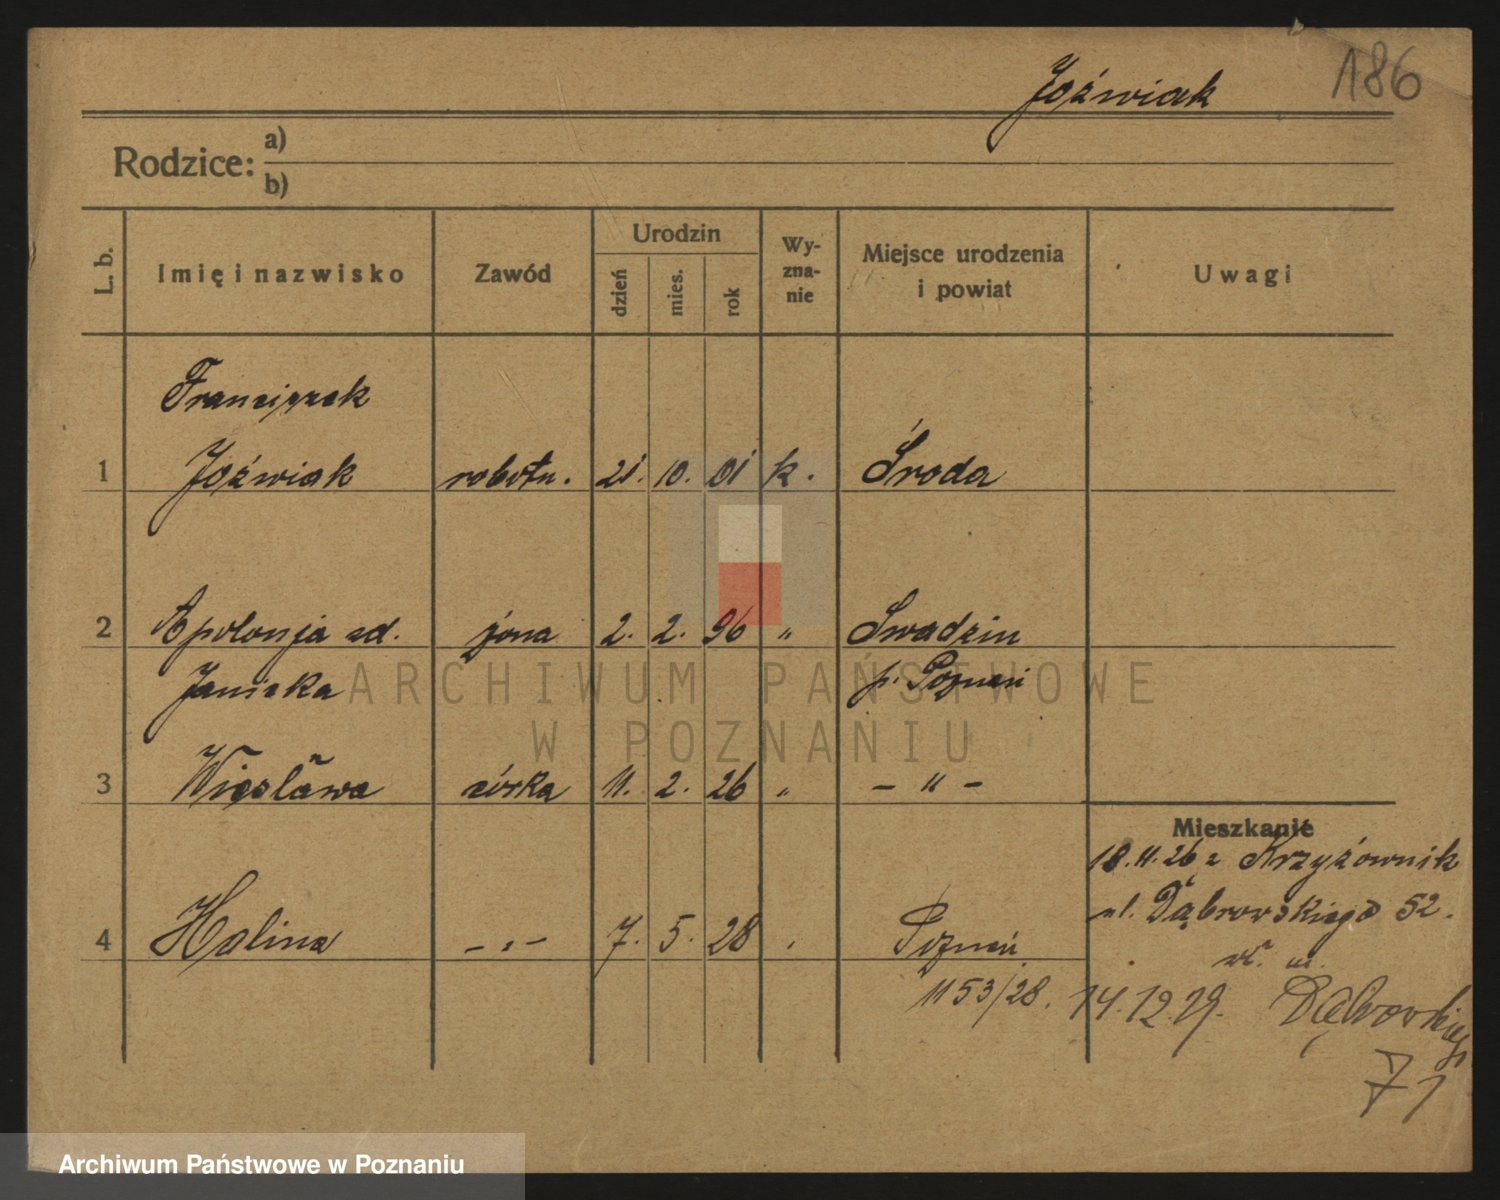 Jóźwiak 186
Rodzice: a)
b)
L. b. Imię i nazwisko Zawód Urodzin dzień mies. rok Wy-zna-nie Miejsce urodzenia i powiat Uwagi
Franciszek
1 Jóźwiak robotn. 21. 10. 01 k. Środa
2 Apolonja zd. żona 2. 2. 96 " Swadzim
Janicka p. Poznań
3 Wiesława córka 11. 2. 26 " - " -
Mieszkanie
18.11.26 z Krzyżownik
ul. Dąbrowskiego 52.
4 Halina - " - 7. 5. 28 " Poznań
1153/28. 14.12.29. Dąbrowskiego
71
ARCHIWUM PAŃSTWOWE
W POZNANIU
Archiwum Państwowe w Poznaniu